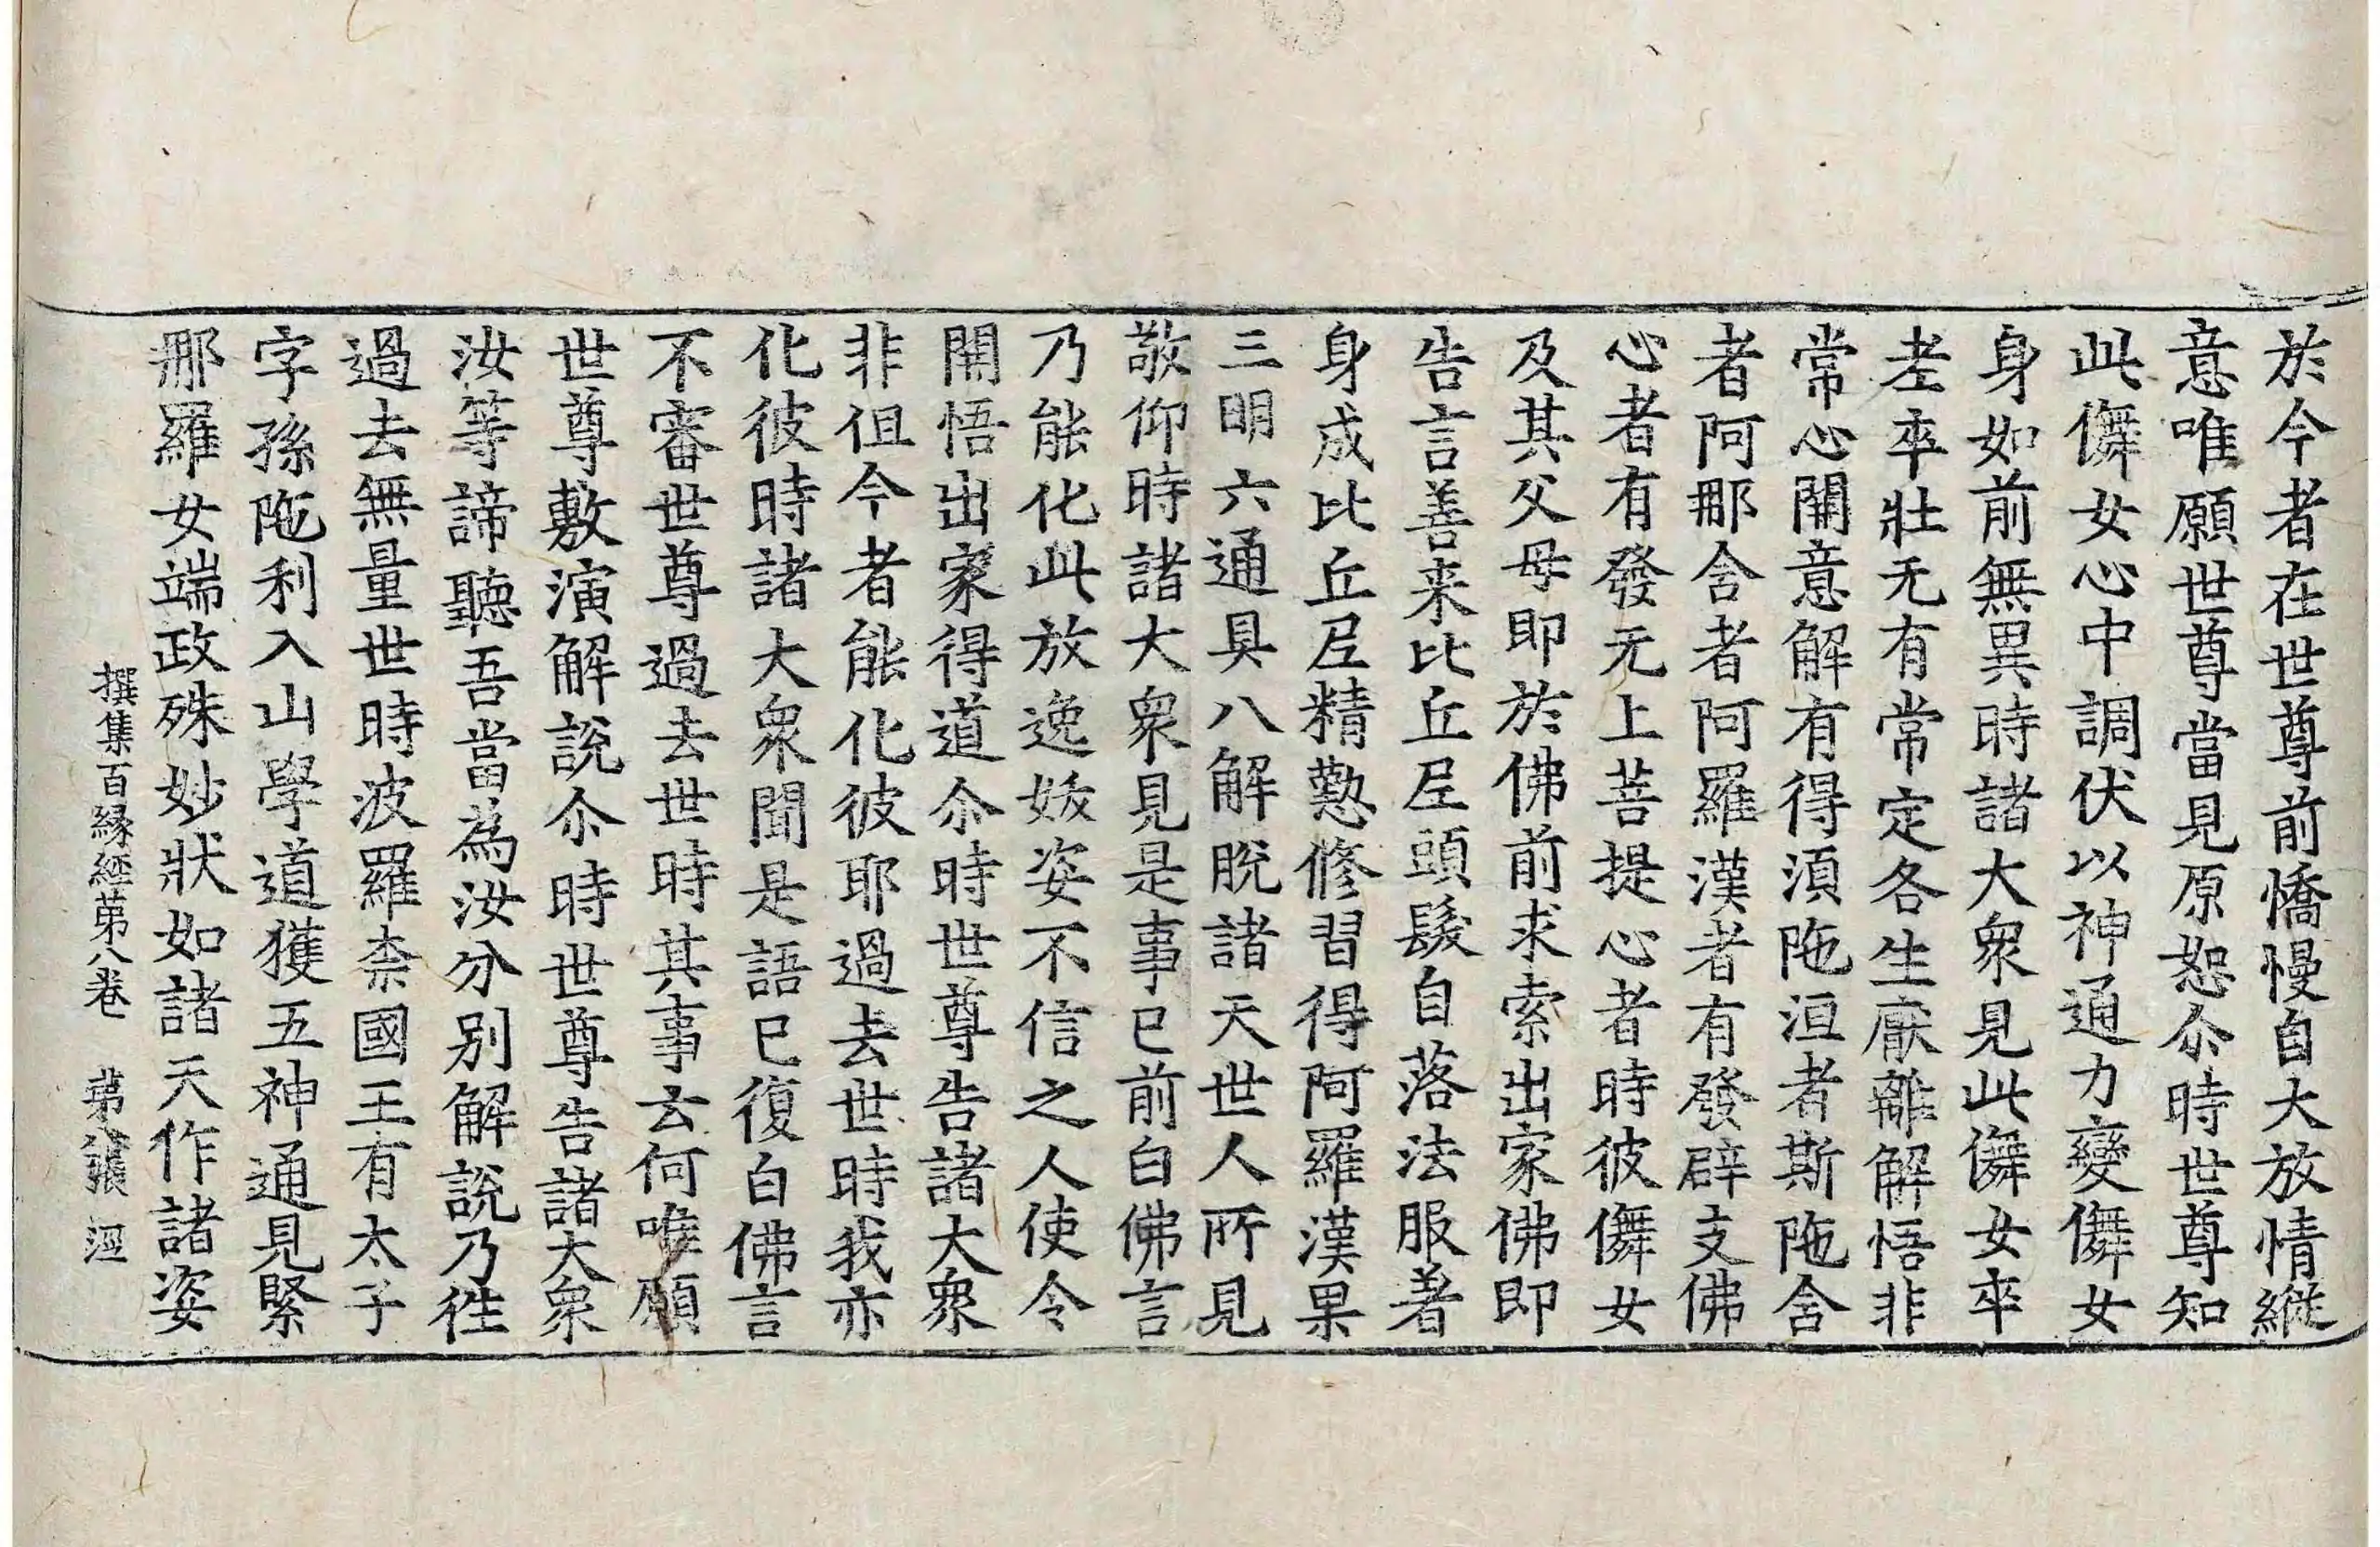 於今者在世尊前憍慢自大放情縱
意唯願世尊當見原恕尒時世尊知
此儛女心中調伏以神通力變儛女
身如前無異時諸大衆見此儛女卒
老卒壯无有常定各生厭離解悟非
常心開意解有得須陁洹者斯陁含
者阿那含者阿羅漢者有發辟支佛
心者有發无上菩提心者時彼儛女
及其父母即於佛前求索出家佛即
告言善来比丘尼頭髮自落法服著
身成比丘尼精懃修習得阿羅漢果
三明六通具八解脫諸天世人所見
敬仰時諸大衆見是事已前白佛言
乃能化此放逸妭姿不信之人使令
開悟出家得道尒時世尊告諸大衆
非但今者能化彼耶過去世時我亦
化彼時諸大衆聞是語已復白佛言
不審世尊過去世時其事云何唯願
世尊敷演解說尒時世尊告諸大衆
汝等諦聽吾當為汝分別解說乃往
過去無量世時波羅柰國王有太子
字孫陁利入山學道獲五神通見緊
那羅女端政殊妙狀如諸天作諸姿
撰集百緣經第八卷 第八張 涇